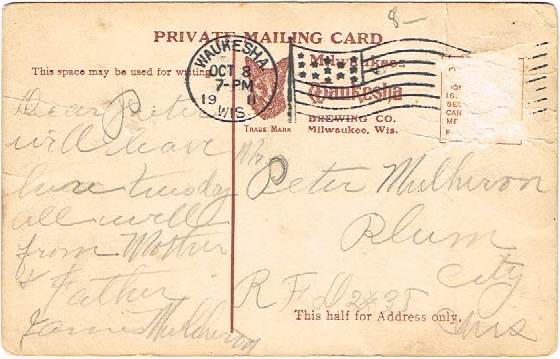 8—
PRIVATE MAILING CARD
This space may be used for writing.
WAUKESHA
OCT 8
7-PM
19 11
WIS.
Milwaukee
Waukesha
BREWING CO.
Milwaukee, Wis.
TRADE MARK
Dear Peter
will leave
here tuesday
all well
from Mother
& Father
James Mulheron
Mr Peter Mulheron
Plum
City
R F D 2 Wis
This half for Address only.